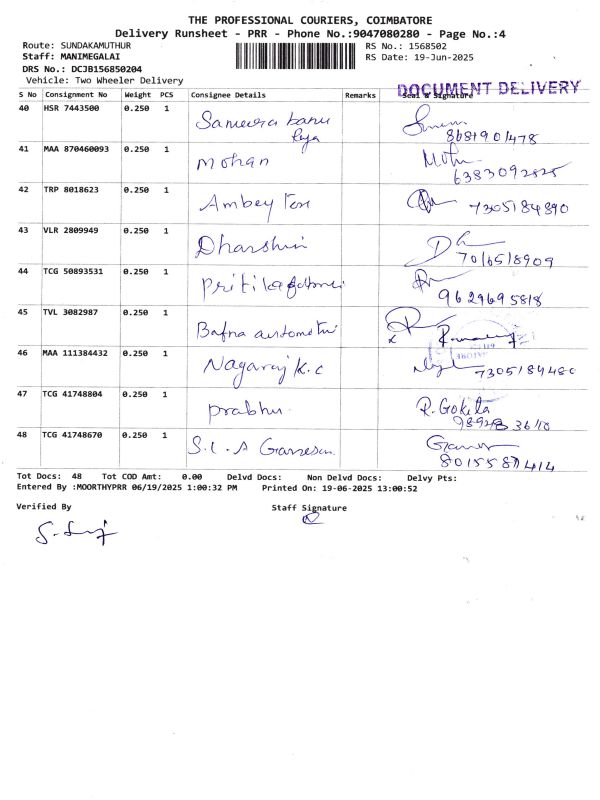 THE PROFESSIONAL COURIERS, COIMBATORE
Delivery Runsheet - PRR - Phone No.:9047080280 - Page No.:4
Route: SUNDAKAMUTHUR
Staff: MANIMEGALAI
DRS No.: DCJB156850204
Vehicle: Two Wheeler Delivery
RS No.: 1568502
RS Date: 19-Jun-2025
DOCUMENT DELIVERY
S No Consignment No Weight PCS Consignee Details Remarks Seal & Signature
40 HSR 7443500 0.250 1 Sameera banu
8681901478
41 MAA 870460093 0.250 1 Mohan
42 TRP 8018623 0.250 1 Ambey Ton 7305184890
43 VLR 2809949 0.250 1 Dharshini
7016518909
44 TCG 50893531 0.250 1
9629695818
45 TVL 3082987 0.250 1 Bafna
46 MAA 111384432 0.250 1 Nagaraj K.C 7305184480
47 TCG 41748804 0.250 1 Prabhu R. Gokila
48 TCG 41748670 0.250 1 S.L.A Ganesan
Tot Docs: 48 Tot COD Amt: 0.00 Delvd Docs: Non Delvd Docs: Delvy Pts:
Entered By :MOORTHYPRR 06/19/2025 1:00:32 PM Printed On: 19-06-2025 13:00:52
Verified By Staff Signature